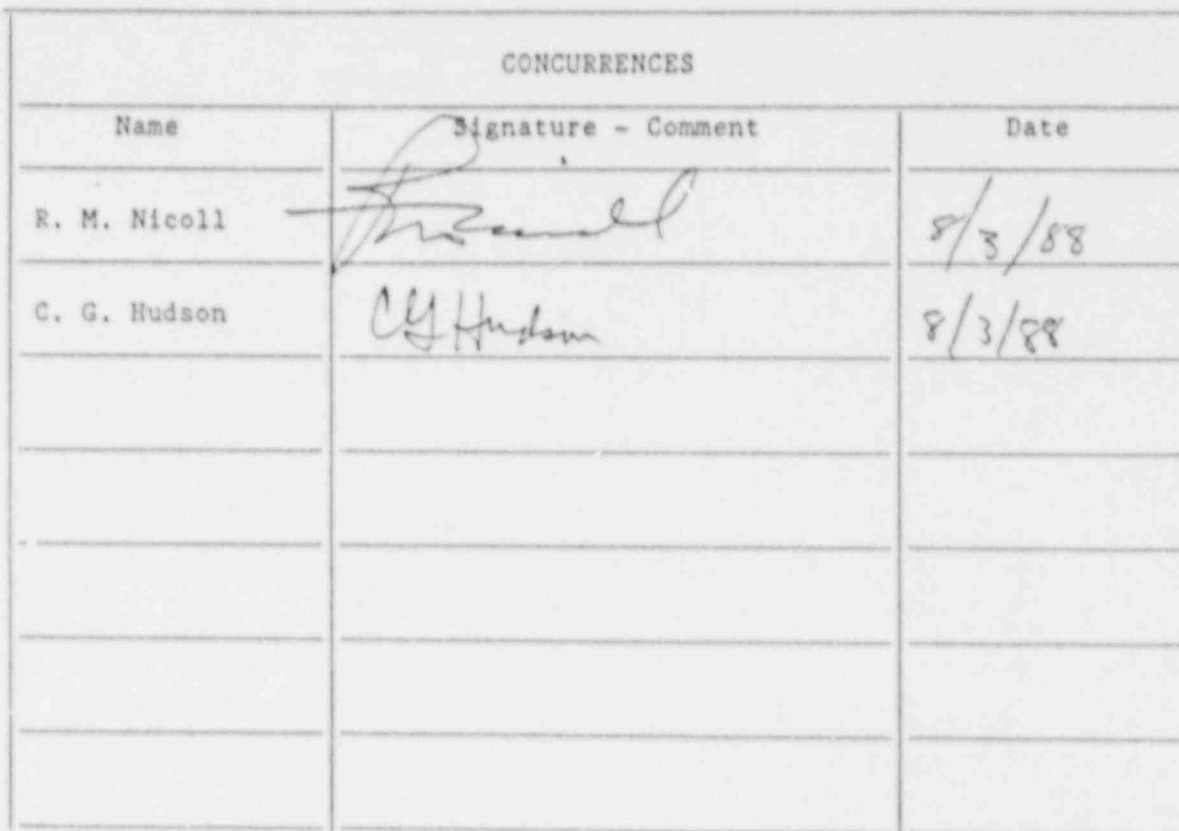 CONCURRENCES
Name Signature - Comment Date
R. M. Nicoll 8/3/88
C. G. Hudson CG Hudson 8/3/88